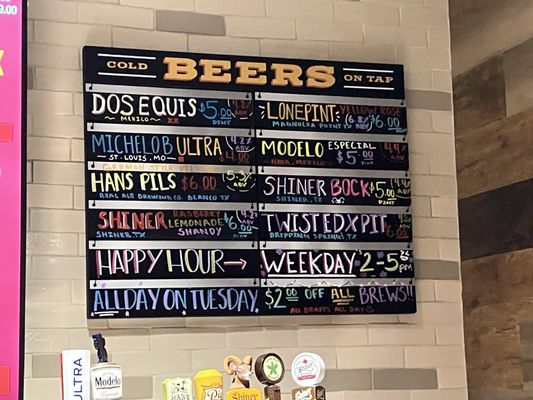 9.00
COLD
BEERS
ON TAP
DOS EQUIS $5.00 4.2% ABV
MEXICO XX PINT
LONEPINT YELLOW ROSE
MAGNOLIA (6.8%) $6.00
MICHELOB ULTRA 4.2% ABV
ST. LOUIS, MO
MODELO ESPECIAL 4.4% ABV
MEXICO $5.00
GERMAN STYLE
HANS PILS $6.00 ABV
REAL ALE BREWING CO. BLANCO TX PINT
SHINER BOCK $5.00 4.4% ABV
SHINER, TX PINT
SHINER RASBERRY LEMONADE SHANDY $6.00 ABV
SHINER, TX PINT
TWISTED X PIT
DRIPPING SPRINGS TX $6.00
HAPPY HOUR → WEEKDAY 2-5 PM
ALL DAY ON TUESDAY $2.00 OFF ALL BREWS!!
ALL DRAFTS ALL DAY
ULTRA
Modelo
Shiner